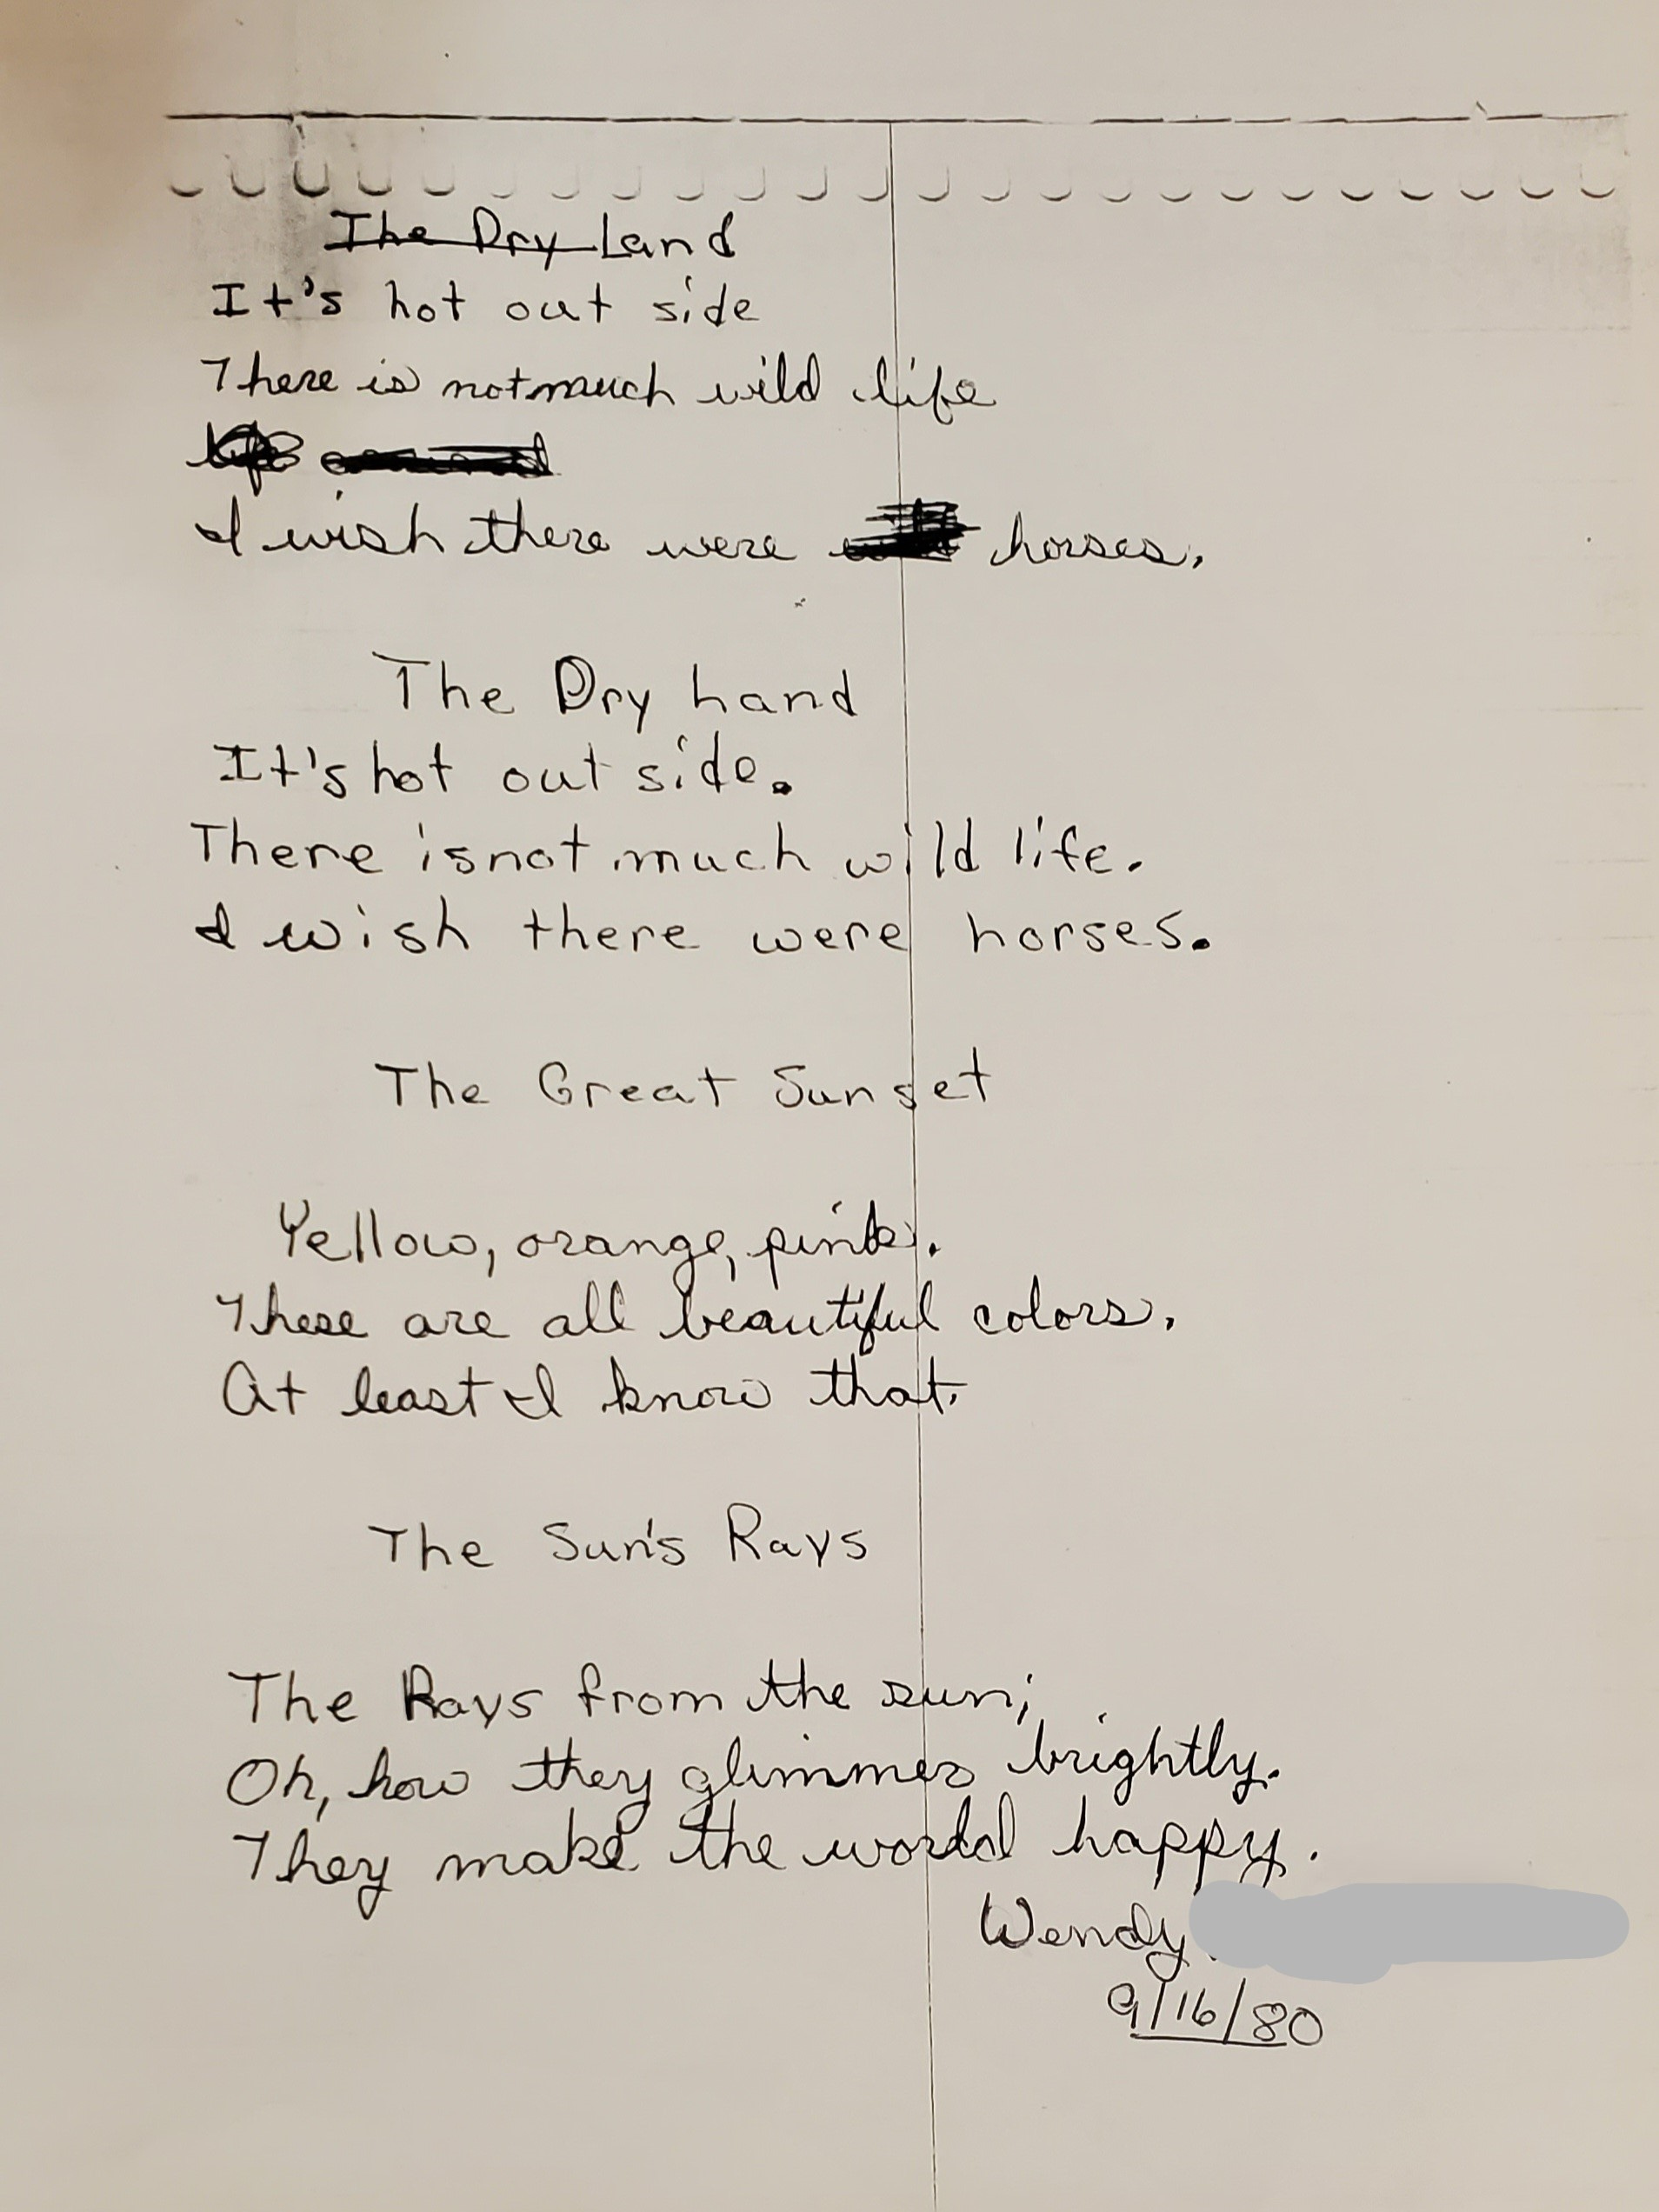 The Dry Land
It's hot out side
There is not much wild life
I wish there were horses.
The Dry Land
It's hot out side.
There is not much wild life.
I wish there were horses.
The Great Sunset
Yellow, orange, pink.
These are all beautiful colors.
At least I know that.
The Sun's Rays
The Rays from the sun;
Oh, how they glimmer brightly.
They make the world happy.
Wendy
9/16/80